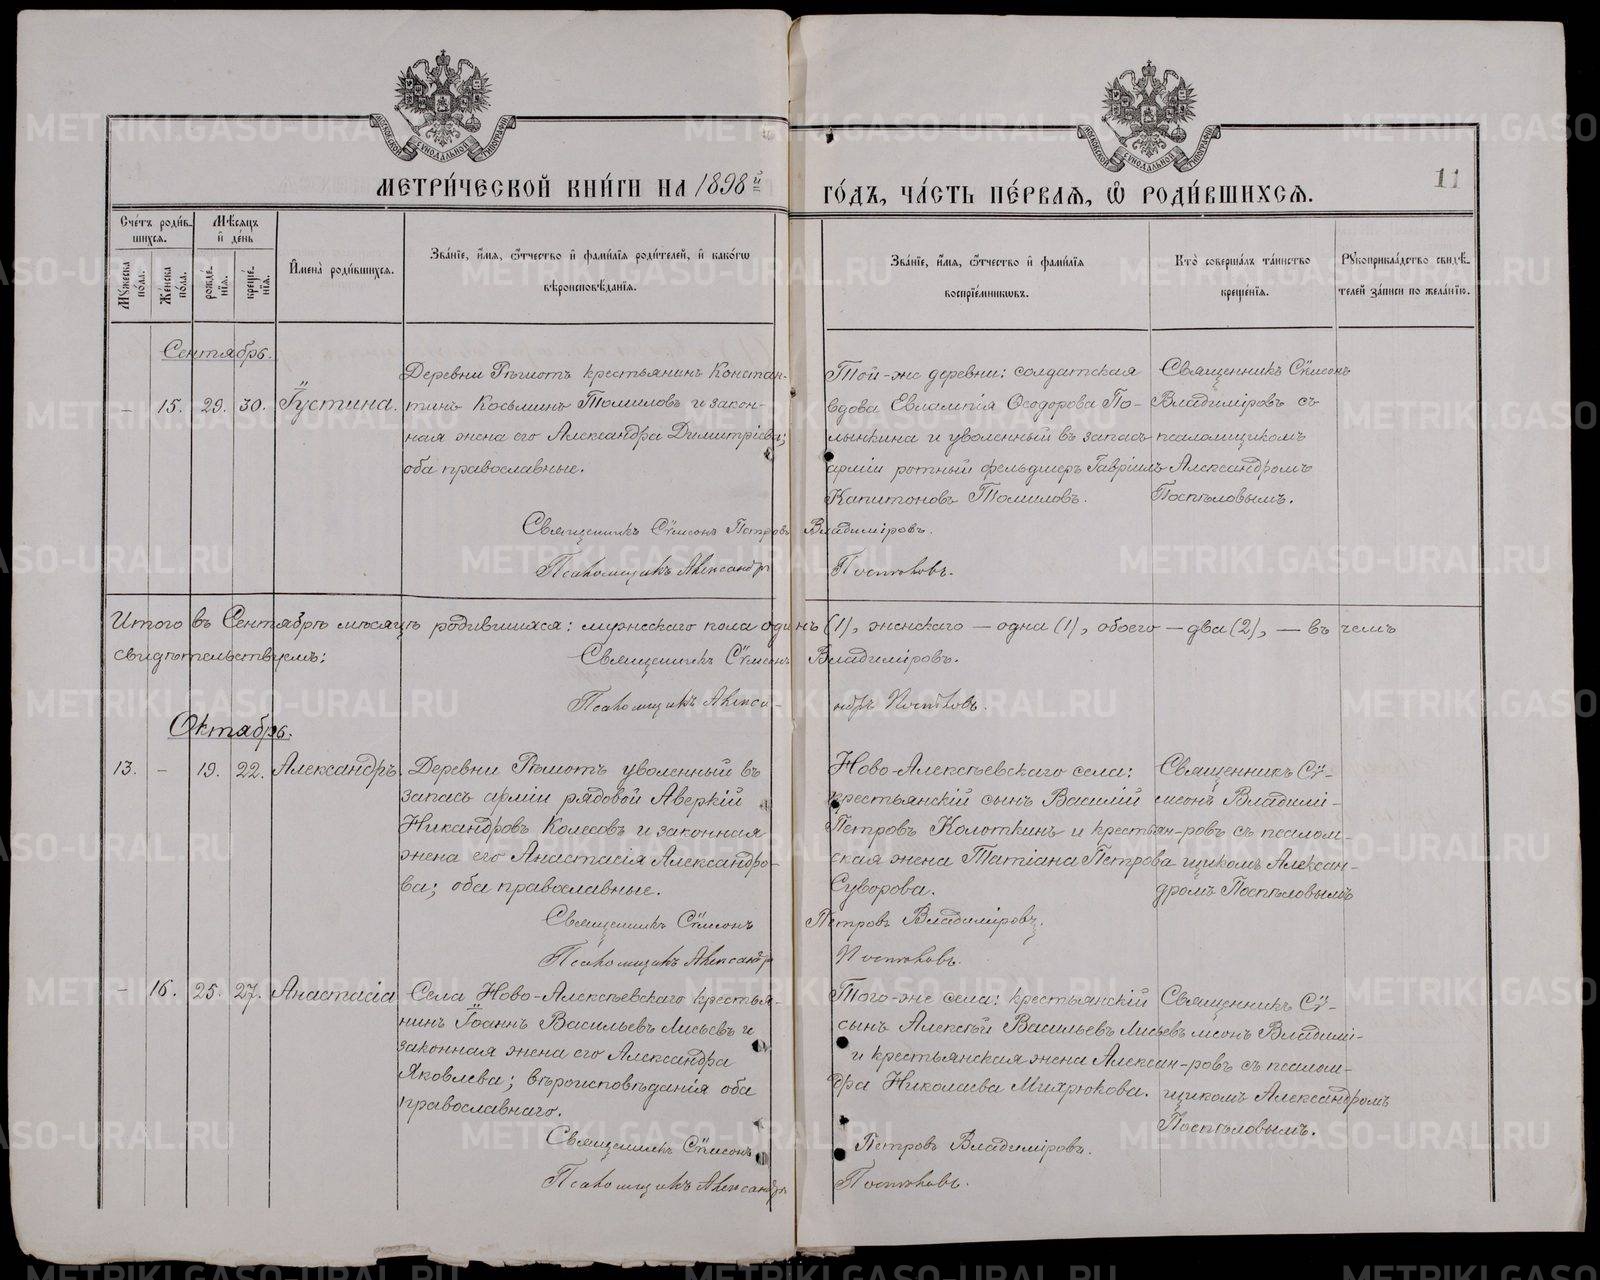 МЕТРИ́ЧЕСКОЙ КНИ́ГИ НА 1898й ГО́ДЪ, ЧА́СТЬ ПЕ́РВАЯ, Ѡ҆ РОДИ́ВШИХСѦ.
11
МОСКОВСКОЙ СѴНОДАЛЬНОЙ ТИПОГРАФІИ
МОСКОВСКОЙ СѴНОДАЛЬНОЙ ТИПОГРАФІИ
Сче́тъ роди́в-
шихсѧ.
Му́жеска по́ла.
Же́нска по́ла.
Мѣ́сѧцъ
и҆ де́нь
рожде́нїѧ.
креще́нїѧ.
И҆мена̀ роди́вшихсѧ.
Зва́нїе, и҆́мѧ, ѻ҆́тчество и҆ фами́лїѧ роди́телей, и҆ како́гѡ
вѣроисповѣ́данїѧ.
Зва́нїе, и҆́мѧ, ѻ҆́тчество и҆ фами́лїѧ
воспрїе́мникѡвъ.
Кто̀ соверша́лъ та́инство
креще́нїѧ.
Рꙋкоприкла́дство свидѣ́-
телей за́писи по жела́нїю.
Сентябрь.
– 15. 29. 30. Іустина.
Деревни Рѣшотъ крестьянинъ Констан-
тинъ Косьминъ Томиловъ и закон-
ная жена его Александра Димитріева;
оба православные.
Той-же деревни: солдатская
вдова Евлампія Ѳеодорова По-
лынкина и уволенный въ запасъ
арміи ротный фельдшеръ Гавріилъ
Капитоновъ Томиловъ.
Священникъ Сѵмеонъ
Владиміровъ съ
псаломщикомъ
Александромъ
Поспѣловымъ.
Священникъ Сѵмеонъ Петровъ Владиміровъ.
Псаломщикъ Александръ Поспѣловъ.
Итого въ Сентябрѣ мѣсяцѣ родившихся: мужескаго пола одинъ (1), женскаго — одна (1), обоего — два (2), — въ чемъ
свидѣтельствуемъ:
Священникъ Сѵмеонъ Владиміровъ.
Псаломщикъ Алекса-ндръ Поспѣловъ.
Октябрь.
13. – 19. 22. Александръ.
Деревни Рѣшотъ уволенный въ
запасъ арміи рядовой Аверкій
Никандровъ Колесовъ и законная
жена его Анастасія Александро-
ва; оба православные.
Ново-Алексѣевскаго села:
крестьянскій сынъ Василій
Петровъ Колоткинъ и крестьян-
ская жена Татіана Петрова
Суворова.
Священникъ Сѵ-
меонъ Владимі-
ровъ съ псалом-
щикомъ Алексан-
дромъ Поспѣловымъ
Священникъ Сѵмеонъ Петровъ Владиміровъ.
Псаломщикъ Александръ Поспѣловъ.
– 16. 25. 27. Анастасія
Села Ново-Алексѣевскаго крестья-
нинъ Іоаннъ Васильевъ Лисьевъ и
законная жена его Александра
Яковлева; вѣроисповѣданія оба
православнаго.
Того-же села: крестьянскій
сынъ Алексѣй Васильевъ Лисьевъ
и крестьянская жена Алексан-
дра Николаева Михрюкова.
Священникъ Сѵ-
меонъ Владимі-
ровъ съ псалом-
щикомъ Александромъ
Поспѣловымъ.
Священникъ Сѵмеонъ Петровъ Владиміровъ.
Псаломщикъ Александръ Поспѣловъ.
METRIKI.GASO-URAL.RU